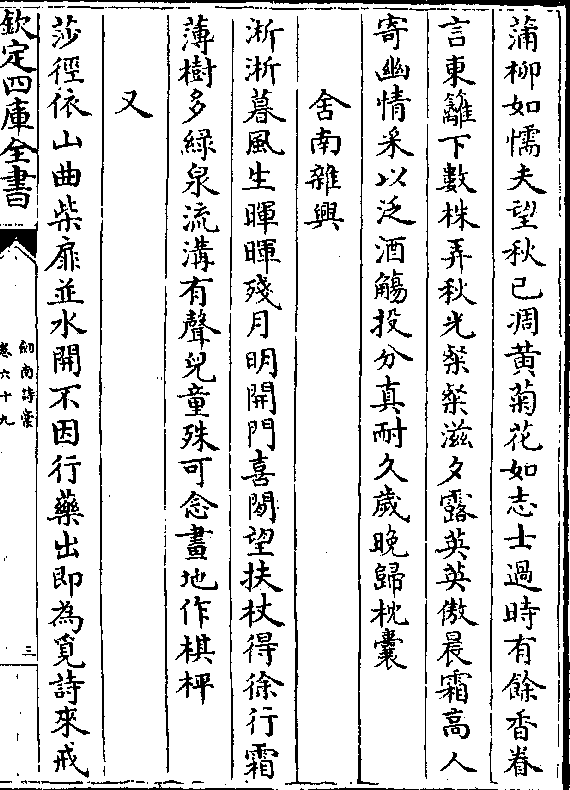 蒲柳如懦夫望秋已凋黄菊花如志士過時有餘香眷
言東籬下數株弄秋光粲粲滋夕露英英傲晨霜高人
寄幽情采以泛酒觴投分真耐久歲晚歸枕囊
舍南雜興
淅淅暮風生暉暉殘月明開門喜閒望扶杖得徐行霜
薄樹多緑泉流溝有聲兒童殊可念畫地作棋枰
又
莎徑依山曲柴扉並水開不因行藥出即為覓詩來戒
欽定四庫全書
劍南詩稾
卷六十九
三